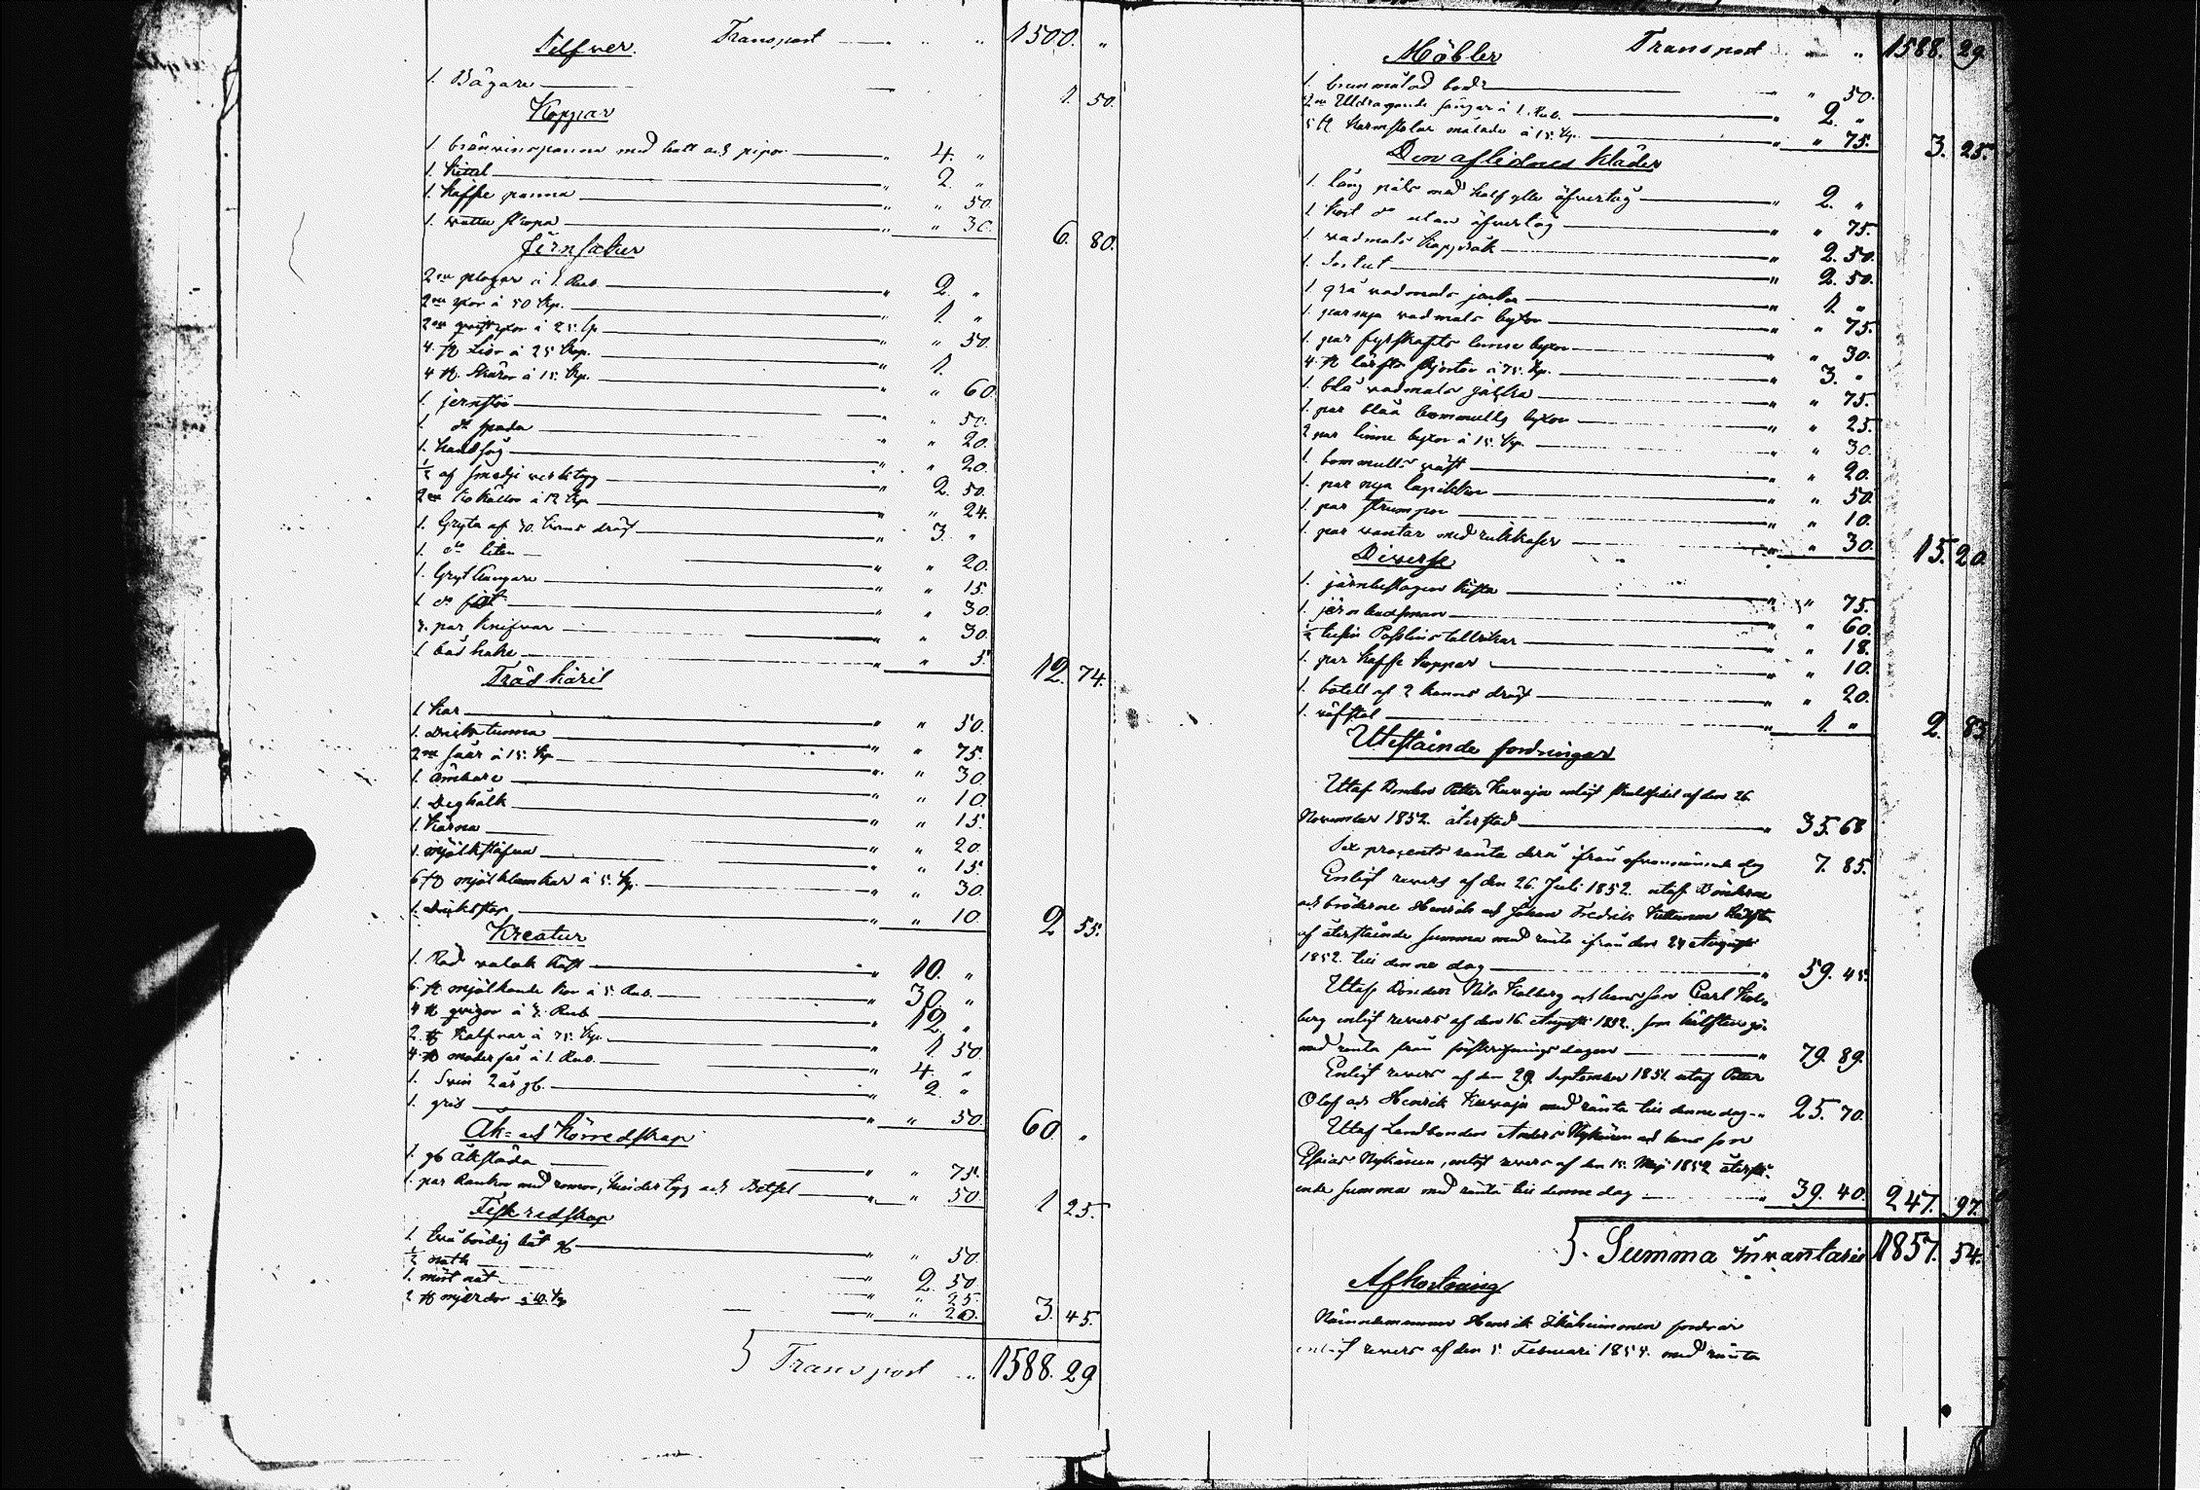 Silfver. Transport " " 1500. "
1. Bägare 1. 50.
Koppar
1. bränvinspanna med hatt och pipor " 4. "
1. Kittel " 2. "
1. Kaffe panna " " 50.
1. vattu skopa " " 30. 6. 80.
Järnsaker
2ne plogar à 1 Rub. " 2. "
2ne yxor à 50 Kop. " 1. "
2ne à 25 Kp. " " 50.
4. st. Liar à 25 Kop. " 1.
4 st. Skäror à 15. Kp. " " 60.
1. jernstör " " 50.
1. do spada " " 20.
1. handsåg " " 20.
½ af smedje verktyg " 2. 50.
2ne Koskällor à 12 Kop " " 24.
1. Gryta af 30. kanns drägt " 3. "
1. do liten " " 20.
1. Grythängare " " 15.
1 do fot " " 30.
3. par Knifvar " " 30.
1 båshake " " 5. 12. 74.
Träd käril
1 Kar " " 50.
1. Dricktunna " " 75.
2ne såar à 15. Kp " " 30.
1. ämbare " " 10.
1. Deghålk " " 15.
1. Kärna " " 20.
1. mjölkstäfva " " 15.
6 st mjölkbunkar à 5. Kp. " " 30.
1. Drickstop " " 10. 2. 55.
Kreatur
1. Röd valak häst " 10. "
6. st. mjölkande kor à 5. Rub. " 30. "
4 st. qvigor à 3. Rub " 12. "
2. st Kalfvar à 75. Kp. " 1. 50
4. st moderfår à 1. Rub. " 4. "
1. Svin 2 år gl. " 2. "
1. gris " " 50. 60. "
Åk= och Körredskap
1. gl åksläda " " 75.
1. par Rankor med remor, Selar tyg och Betsel " " 50. 1 25.
Fiskredskap
1. tvåbördig båt gl " " 50.
½ noth " 2. 50.
1. mört nät " " 25.
2 st mjerdor à 10. Kp " " 20. 3. 45.
} Transport " 1588. 29
Möbler Transport " " 1588. 29.
1. brunmålad bord " " 50.
2ne Utdragande sängar à 1. Rub. " 2. "
5 st Karmstolar målade à 15. Kp. " " 75. 3. 25.
Den aflidnes kläder
1. lång päls med halfylle öfvertyg " 2. "
1 Kort do utan öfvertyg " " 75.
1. vadmals kapprock " 2. 50.
1. Surtut " 2. 50.
1. grå vadmals jacka " 1. "
1. par nya vadmals byxor " " 75.
1. par fyrskafts linne byxor " " 30.
4. st lärfts skjortor à 75. Kp. " 3. "
1. blå vadmals jacka " " 75.
1. par blåa bommulls byxor " " 25.
2 par linne byxor à 15. Kp. " " 30.
1. bommulls väst " " 20.
1. par nya lapikkor " " 50.
1. par strumpor " " 10.
1. par vantar med rukkaser " " 30. 15. 20.
Diverse
1. järnbeslagen kista " " 75.
1. järn besman " " 60.
½ tussin Posslins tallrikar " " 18.
1. par kaffe koppar " " 10.
1. botell af 2 kanns drägt " " 20.
1. väfstol " 1. " 2. 83
Utestående fordringar
Utaf Bonden Petter Kuvaja enligt skuldsedel af den 26
November 1852. återstod " 35. 68
Sex procents ränta derå ifrån ofvannämnde dag 7. 85.
Enligt revers af den 26. Juli 1852. utaf Bönderne
och bröderne Henrik och Johan Fredrik Kuttunen hälften
af återstående summa med ränta ifrån den 24 Augusti
1852. till denne dag " 59. 45.
Utaf Bonden Nils Kolberg och hans son Carl Kol-
berg enligt revers af den 16. Augusti 1852. som hälften gör
med ränta från förskrifnings dagen " 79. 89.
Enligt revers af den 29. September 1851 utaf Petter
Olof och Henrik Kuvaja med ränta till denne dag " 25. 70.
Utaf Landbonden Anders Nykänen och hans son
Esaias Nykänen, enligt revers af den 15. Maj 1852 återstå-
ende summa med ränta till denne dag " 39. 40. 247. 97.
}. Summa Invantarii 1857. 54.
Afkortning
Nämndemannen Henrik fordrar
enligt revers af den 5. Februari 1854. med ränta